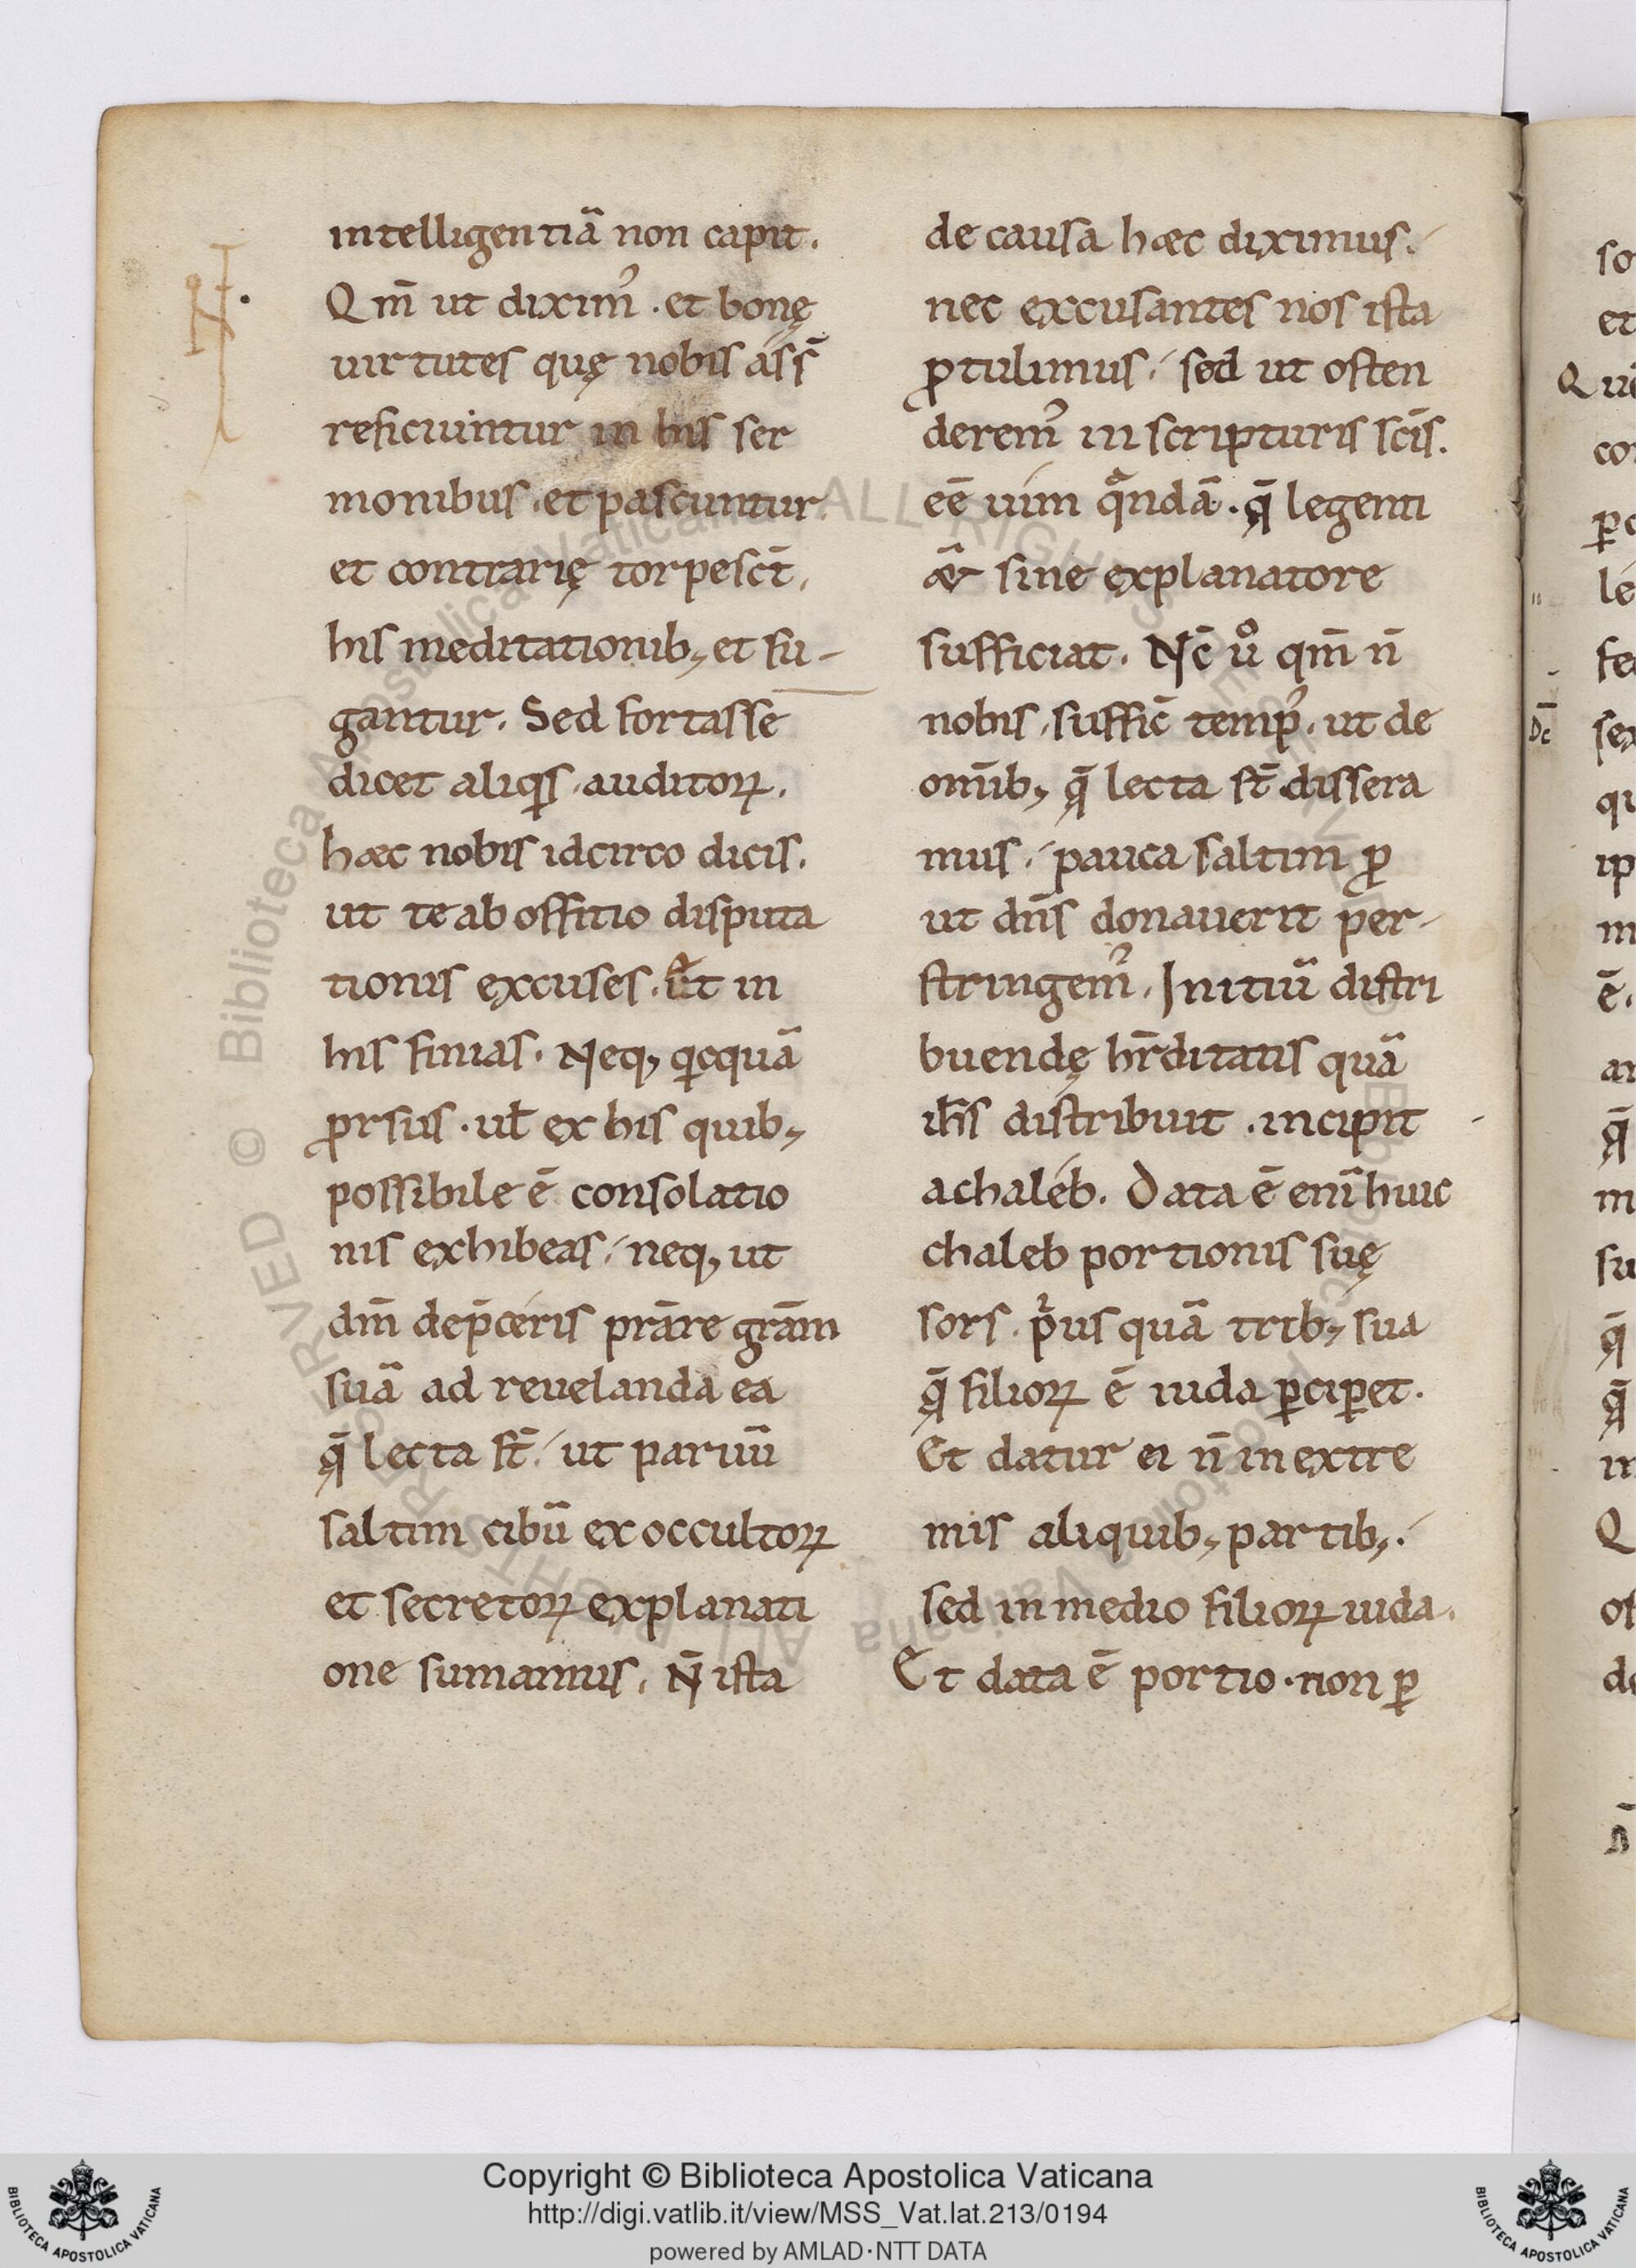 intelligentiā non capit.
Qm̄ ut diximꝰ. et bonę
uirtutes quę nobis ass̄
reficiuntur in his ser
monibus. et pascuntur.
et contrarię torpesct̄.
his meditationib; et fu-
gantur. Sed fortasse
dicet aliqͥs auditoꝝ.
hæc nobis idcirco dicis.
ut te ab offitio disputa
tionis excuses. Et in
his finias. Neq; qͥcquā
ꝓrsus. ul̄ ex his quib;
possibile ē consolatio
nis exhibeas. neq; ut
dm̄ dep̄ceris prāre grām
suā ad reuelanda ea
q̄ lecta st̄. ut paruū
saltim cibū ex occultoꝝ
et secretoꝝ explanati
one sumamus. N̄ ista
de causa hæc diximus.
nec excusantes nos ista
ꝓtulimus. sed ut osten
deremꝰ in scripturis scīs.
eē uim qᷓndā. q̄ legenti
sine explanatore
sufficiat. Nc̄ uͦ qm̄ n̄
nobis suffic̄ tempꝰ. ut de
omīb; q̄ lecta st̄ dissera
mus. pauca saltim ꝓ
ut dn̄s donauerit per-
stringemꝰ. Initiū distri
buendę hr̄ditatis quā
ih̄s distribuit. incipit
a chaleb. Data ē enī huic
chaleb portionis suę
sors pͥus quā trib; sua
q̄ filioꝝ ē iuda ꝑciꝑet.
Et datur ei n̄ in extre
mis aliquib; partib;.
sed in medio filioꝝ iuda.
Et data ē portio. non ꝑ
Dc̄
Copyright © Biblioteca Apostolica Vaticana
http://digi.vatlib.it/view/MSS_Vat.lat.213/0194
powered by AMLAD·NTT DATA
BIBLIOTECA APOSTOLICA VATICANA
BIBLIOTECA APOSTOLICA VATICANA